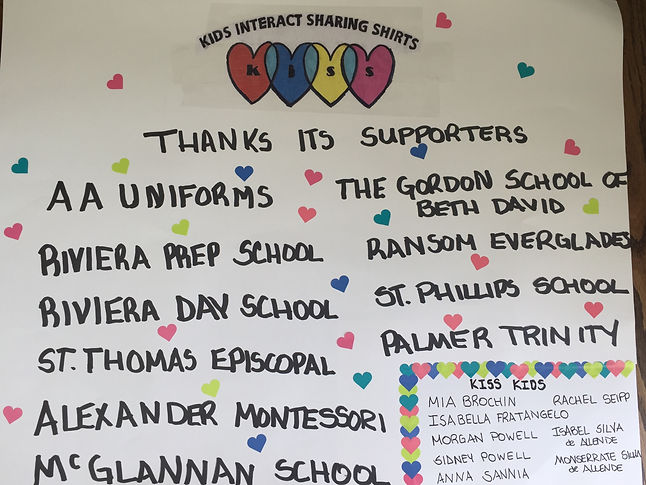 KIDS INTERACT SHARING SHIRTS
K i S S
THANKS ITS SUPPORTERS
AA UNIFORMS
RIVIERA PREP SCHOOL
RIVIERA DAY SCHOOL
ST. THOMAS EPISCOPAL
ALEXANDER MONTESSORI
McGLANNAN SCHOOL
THE GORDON SCHOOL OF
BETH DAVID
RANSOM EVERGLADES
ST. PHILLIPS SCHOOL
PALMER TRINITY
KISS KIDS
MIA BROCHIN
ISABELLA FRATANGELO
MORGAN POWELL
SIDNEY POWELL
ANNA SANNIA
RACHEL SEIPP
ISABEL SILVA
de ALLENDE
MONSERRATE SILVA
de ALLENDE